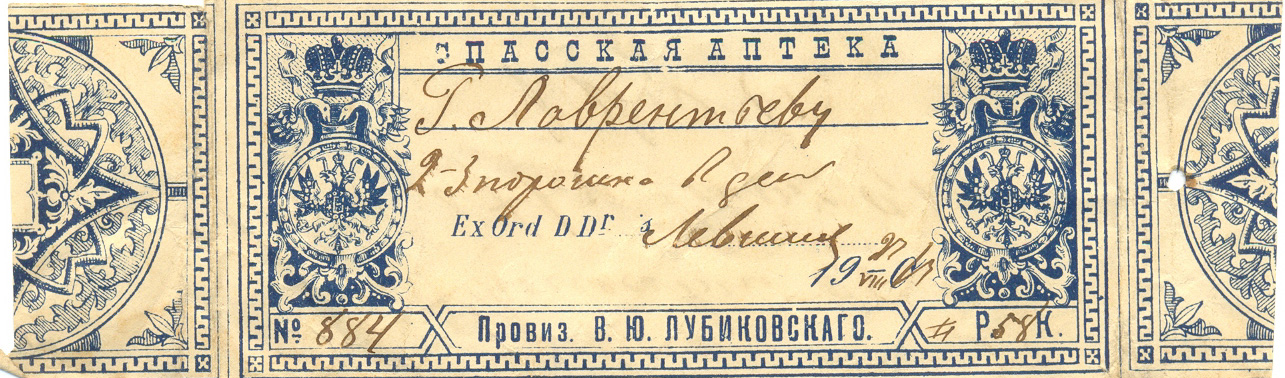 СПАССКАЯ АПТЕКА
Г. Лаврентьеву
2-3 порошка в день
Ex Ord D Dr
19 27/VIII
№ 884 Провиз. В. Ю. ЛУБИКОВСКАГО. Р. 58 К.